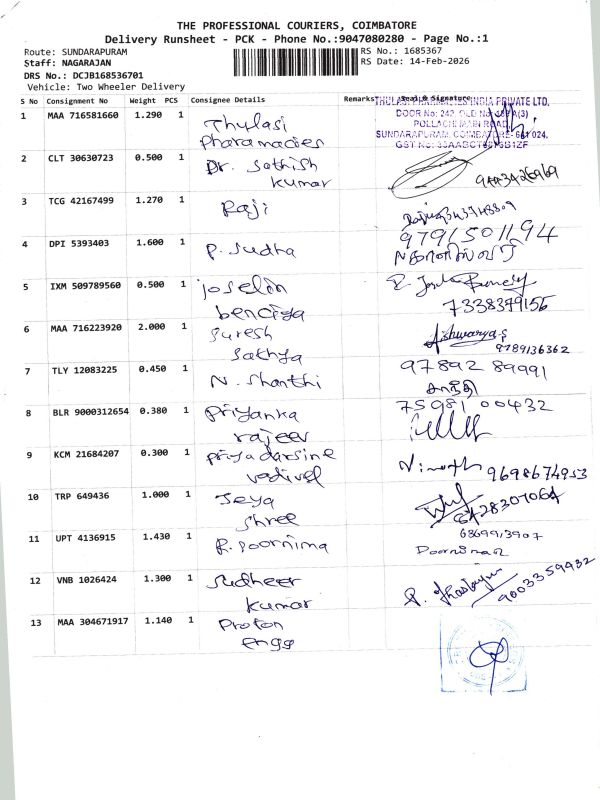 THE PROFESSIONAL COURIERS, COIMBATORE
Delivery Runsheet - PCK - Phone No.:9047080280 - Page No.:1
Route: SUNDARAPURAM
RS No.: 1685367
Staff: NAGARAJAN
RS Date: 14-Feb-2026
DRS No.: DCJB168536701
Vehicle: Two Wheeler Delivery
S No Consignment No Weight PCS Consignee Details Remarks Seal & Signature
THULASI PHARMACIES INDIA PRIVATE LTD.
DOOR No: 242, OLD No:
POLLACHI MAIN ROAD
SUNDARAPURAM, COIMBATORE- 641 024.
1 MAA 716581660 1.290 1 Thylasi
Pharamacies
2 CLT 30630723 0.500 1 Dr. Sathish
kumar
3 TCG 42167499 1.270 1 Raji
4 DPI 5393403 1.600 1 P. Sudha
9791501194
5 IXM 509789560 0.500 1 joselin
benciya
7338379156
6 MAA 716223920 2.000 1 Suresh
Sathya
Aishwarya.S
9789136362
7 TLY 12083225 0.450 1 N. Shanthi
97892 89991
சாந்தி
8 BLR 9000312654 0.380 1 Priyanka
rajeev
75981 00432
9 KCM 21684207 0.300 1 Priyadarsine
vadivel
9698674953
10 TRP 649436 1.000 1 Jeya
Shree
11 UPT 4136915 1.430 1 R. Poornima
6369913907
12 VNB 1026424 1.300 1 Sudheer
kumar
9003359932
13 MAA 304671917 1.140 1 Proton
engg